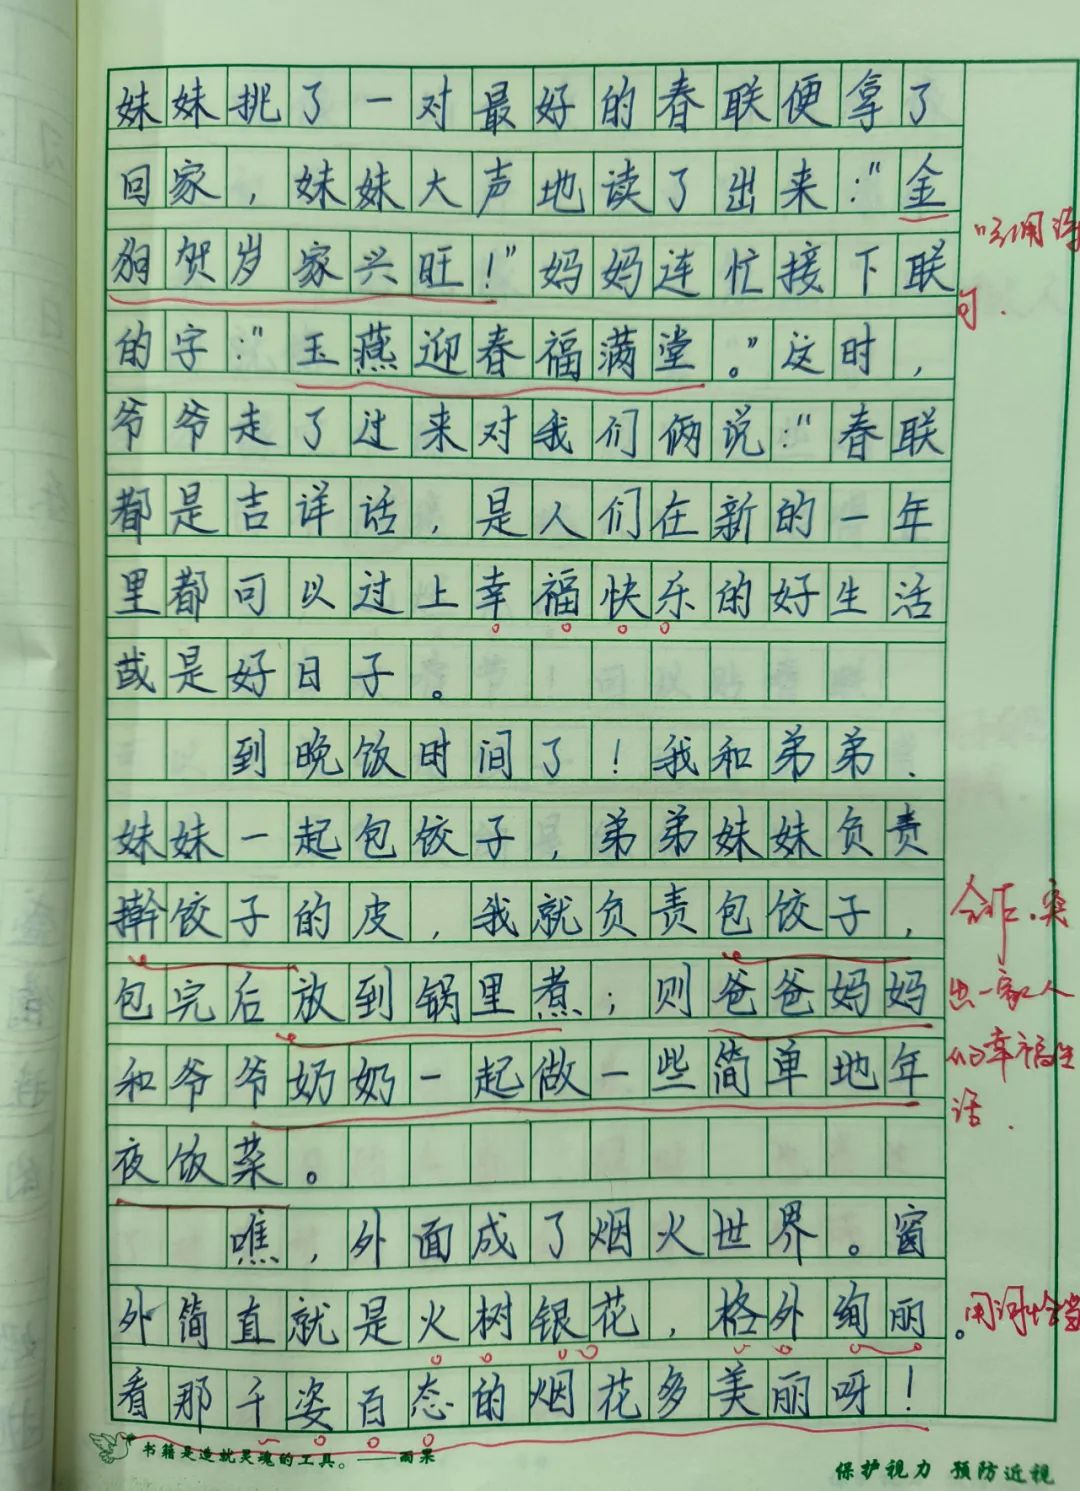 妹妹挑了一对最好的春联便拿了
回家，妹妹大声地读了出来："金
狗贺岁家兴旺！"妈妈连忙接下联
的字："玉燕迎春福满堂。"这时，
爷爷走了过来对我们俩说："春联
都是吉详话，是人们在新的一年
里都可以过上幸福快乐的好生活
或是好日子。
到晚饭时间了！我和弟弟、
妹妹一起包饺子，弟弟妹妹负责
擀饺子的皮，我就负责包饺子，
包完后放到锅里煮；则爸爸妈妈
和爷爷奶奶一起做一些简单地年
夜饭菜。
瞧，外面成了烟火世界。窗
外简直就是火树银花，格外绚丽。
看那千姿百态的烟花多美丽呀！
引用诗
句.
合作.突
出一家人
的幸福生
话.
用词恰当
书籍是造就灵魂的工具。——雨果
保护视力 预防近视